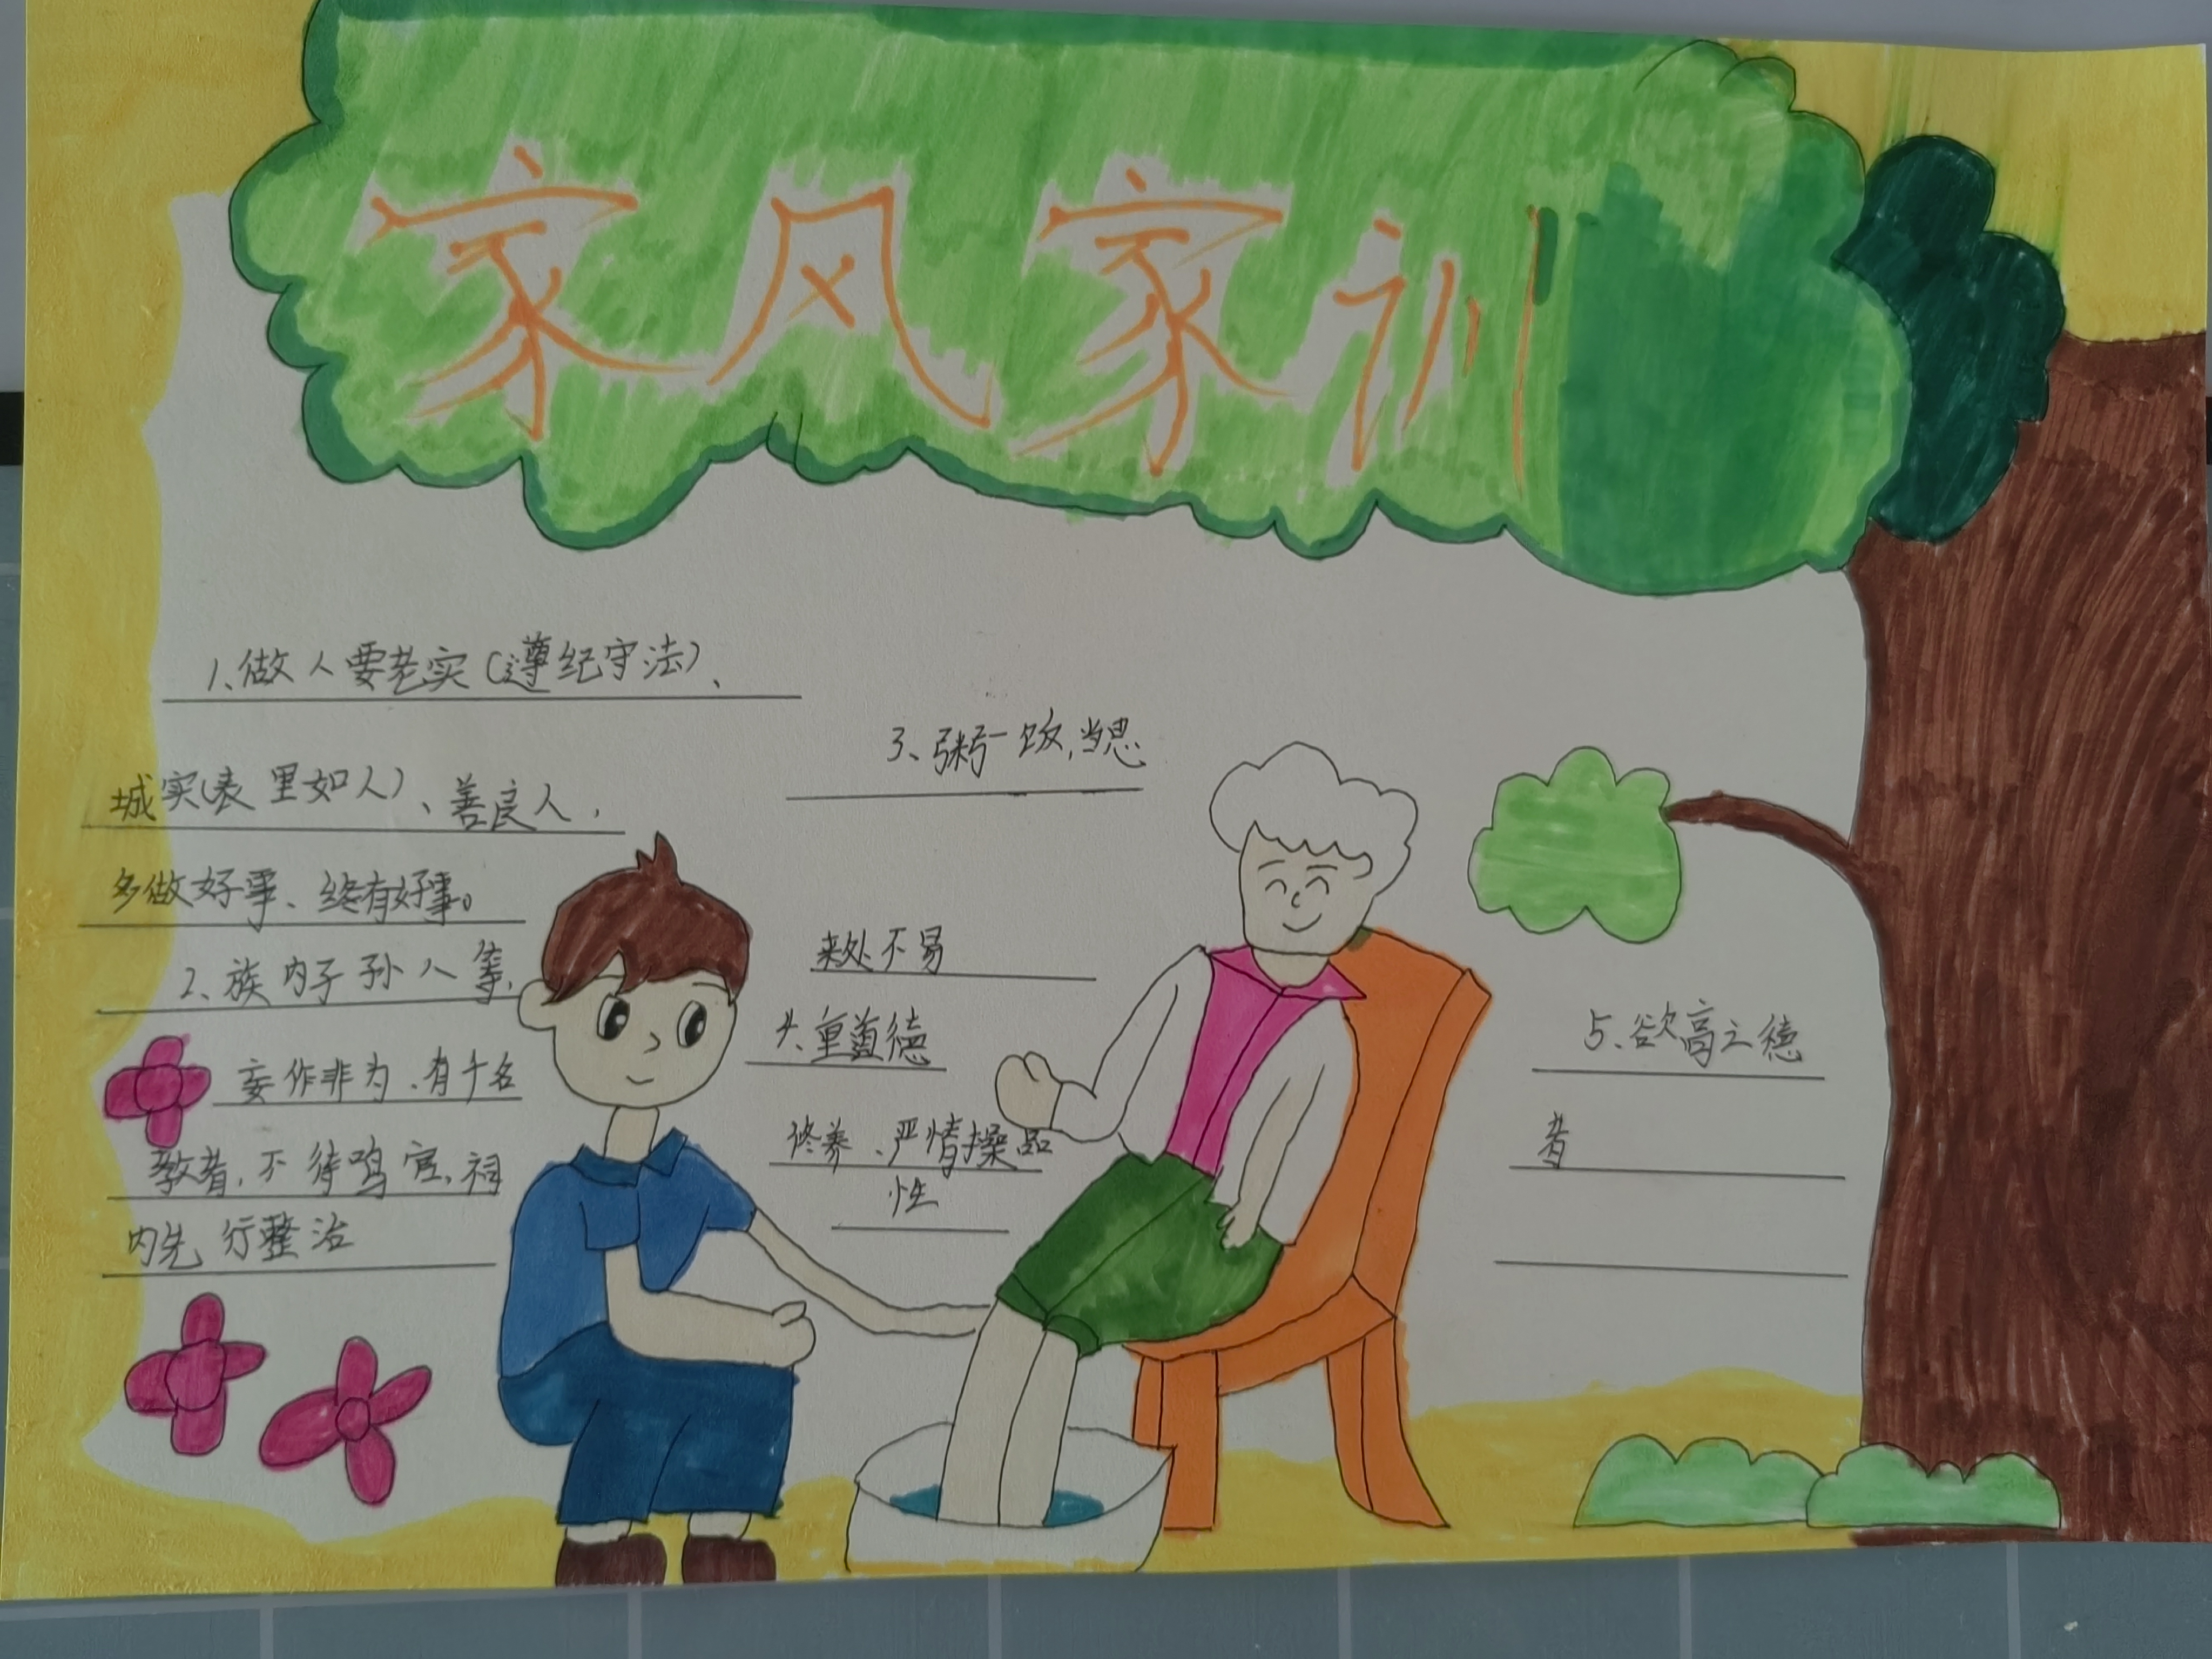 家风家训
1、做人要老实(遵纪守法)、
城实(表里如人)、善良人,
多做好事、终有好事。
2、族内子孙八等,
妄作非为、有干名
教者,不待鸣官,祠
内先行整治
3、粥一饭,当思
来处不易
4.重道德
修养、严情操品
性
5、欲高之德
者